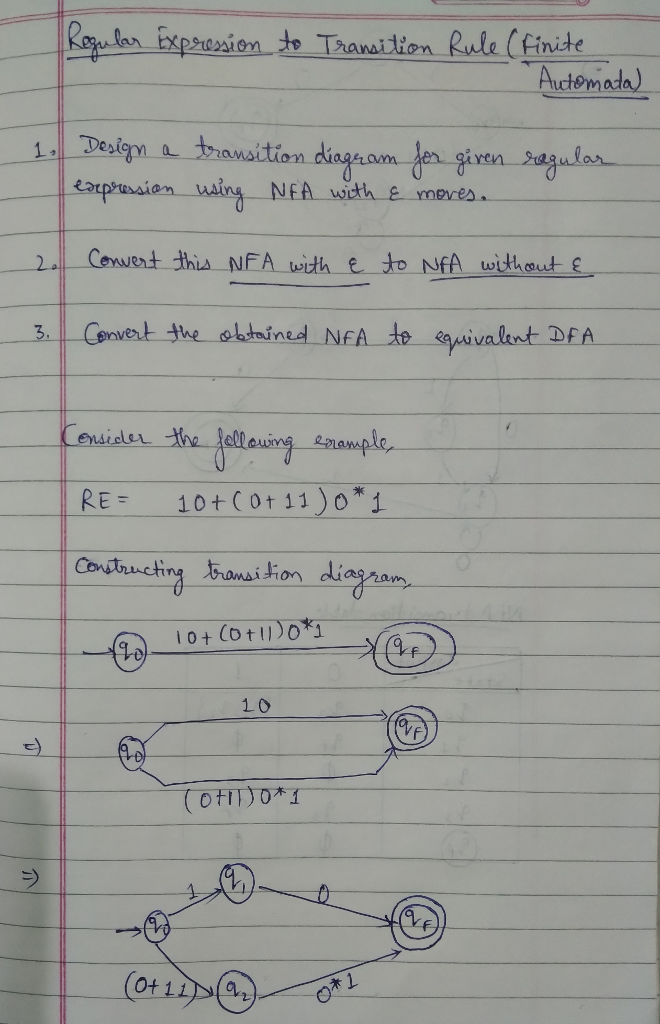 Regular Expression to Transition Rule (Finite
Automata)
1. Design a transition diagram for given regular
expression using NFA with ε moves.
2. Convert this NFA with ε to NFA without ε
3. Convert the obtained NFA to equivalent DFA
Consider the following example,
RE = 10+(0+11)0*1
Constructing transition diagram,
q0 10+(0+11)0*1 qF
10
=) q0 qF
(0+11)0*1
=) 1 q1 0
q0 qF
(0+11) q2 0*1